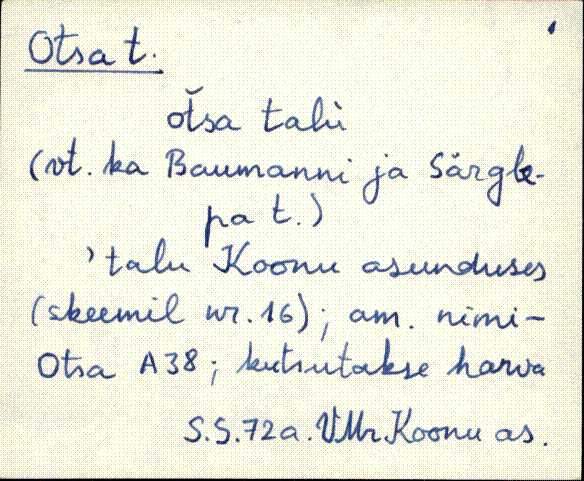 Otsa t.
otsa talù
(vt. ka Baumanni ja Särglε-
pa t.)
'talu Koonu asunduses
(skeemil nr. 16); am. nimi-
Otsa A38; kutsutakse harva
S.S. 72a. VMr Koonu as.